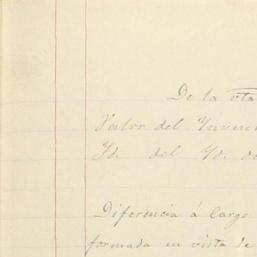 De la
Valor del
Id. del Id. de
Diferencia á cargo
formada en vista de